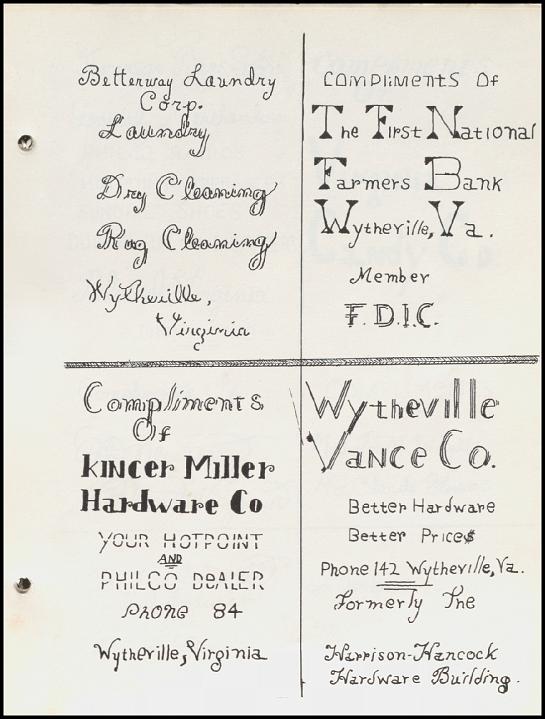 Betterway Laundry
Corp.
Laundry
Dry Cleaning
Rug Cleaning
Wytheville,
Virginia
COMPLIMENTS OF
The First National
Farmers Bank
Wytheville, Va.
Member
F.D.I.C.
Compliments
Of
KINCER MILLER
Hardware Co
YOUR HOTPOINT
AND
PHILCO DEALER
PHONE 84
Wytheville, Virginia
Wytheville
VANCE CO.
Better Hardware
Better Prices
Phone 142 Wytheville, Va.
Formerly The
Harrison-Hancock
Hardware Building.